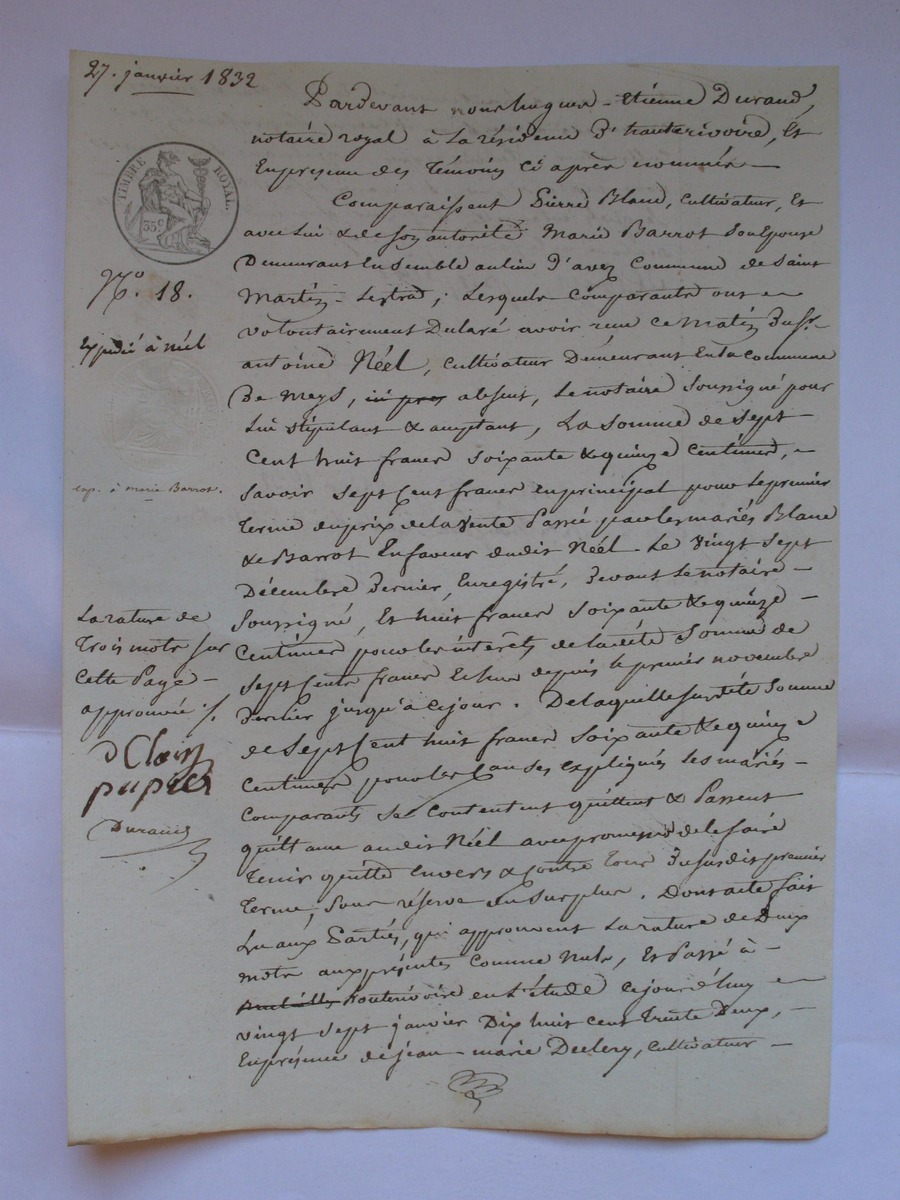 27. janvier 1832
Pardevant nous hugues - Etienne Durand,
notaire royal à La résidence D'hauterivoire, Et
En présence des Témoins Ci après nommés -
Comparaissent Pierre Blanc, Cultivateur, Et
avec Lui & de son autorité Marie Barrot Son Epouse
Demeurant Ensemble au lieu D'avez Commune de Saint
Martin - Lestrad; Lesquels comparants ont
volontairement Déclaré avoir reçu ce Matin Du Sr.
antoine Néel, Cultivateur Demeurant En La Commune
De Meys, absent, Le notaire Soussigné pour
Lui Stipulant & acceptant, La Somme de Sept
Cent huit francs Soixante & quinze Centimes,
Savoir Sept Cent francs en principal pour Le premier
Terme du prix de la Vente Passée par les mariés Blanc
& Barrot En faveur dudit Néel. Le Vingt Sept
Décembre Dernier, Enregistré, Devant Le notaire -
Soussigné, Et huit francs Soixante & quinze -
Centimes pour les intérêts de ladite Somme de
Sept Cents francs Echus depuis le premier novembre
Dernier jusqu'à ce jour. De laquelle Susdite Somme
de Sept Cent huit francs Soixante & quinze
Centimes pour les Causes expliquées Les mariés -
Comparants Se Contentent quittent & Passent
quittance audit Néel avec promesse de le faire
Tenir quitte Envers & Contre Tous Du susdit premier
Terme, Sous réserve du Surplus. Dont acte fait
Lu aux Parties, qui approuvent La rature de Deux
mots aux présentes Comme Nuls, Et Passé à -
hauterivoire en L'étude Cejourd'huy
vingt Sept janvier Dix huit Cent Trente Deux, -
En présence de jean - marie Decléry, Cultivateur -
TIMBRE ROYAL.
35 c
No. 18.
Expédié à Néel
exp. à Marie Barrot.
La rature de
Trois mots sur
Cette Page -
approuvée ./.
Durand